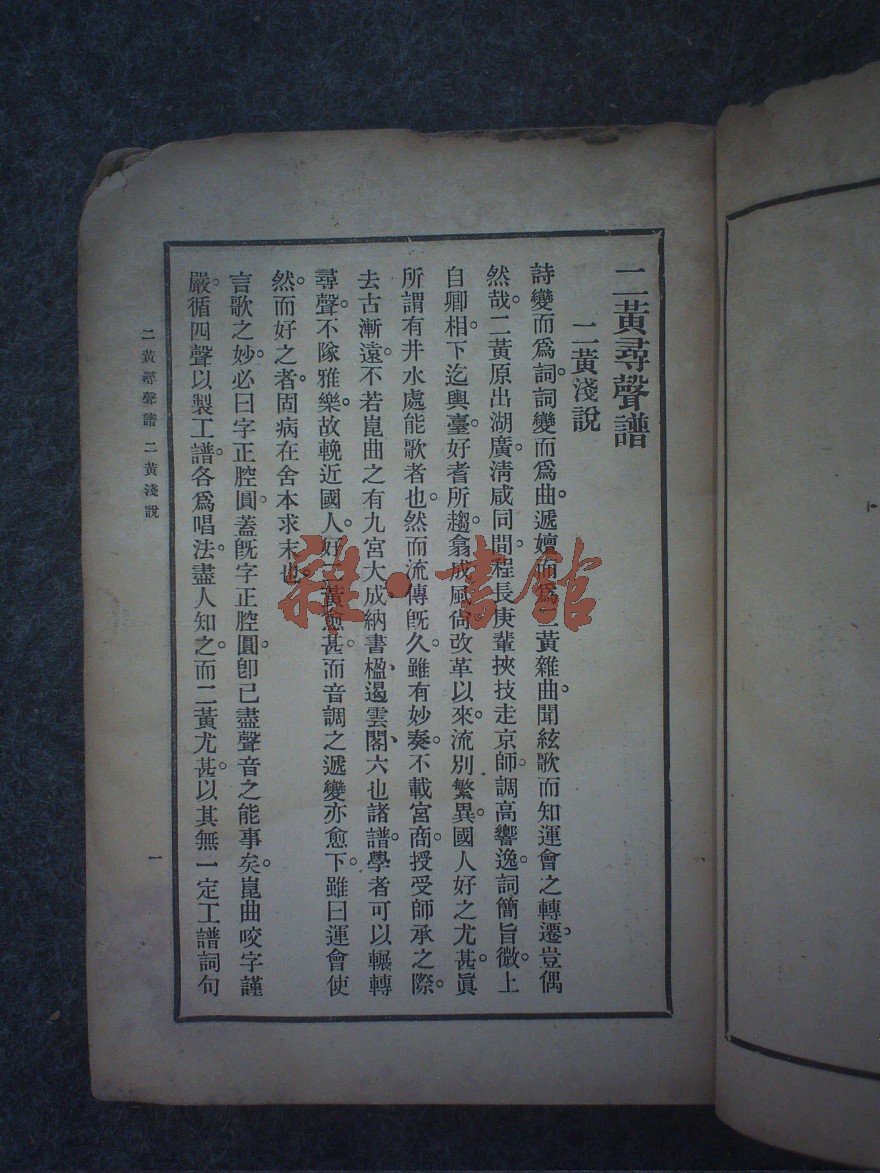 二黃尋聲譜
二黃淺說
詩變而爲詞詞變而爲曲。遞嬗而爲二黃雜曲。聞絃歌而知運會之轉遷。豈偶
然哉。二黃原出湖廣。淸咸同間。程長庚輩挾技走京師。調高響逸。詞簡旨微。上
自卿相。下迄輿臺。好耆所趨。翕成風尙。改革以來。流別繁異。國人好之尤甚。眞
所謂有井水處能歌者也。然而流傳旣久。雖有妙奏。不載宮商。授受師承之際。
去古漸遠。不若崑曲之有九宮大成納書楹、遏雲閣、六也諸譜。學者可以輾轉
尋聲。不隊雅樂。故輓近國人。好二黃愈甚。而音調之遞變亦愈下。雖曰運會使
然。而好之者。固病在舍本求末也。
言歌之妙。必曰字正腔圓。蓋旣字正腔圓。卽已盡聲音之能事矣。崑曲咬字謹
嚴。循四聲以製工譜。各爲唱法。盡人知之。而二黃尤甚。以其無一定工譜詞句
二黃尋聲譜 二黃淺說
一
雜·書館